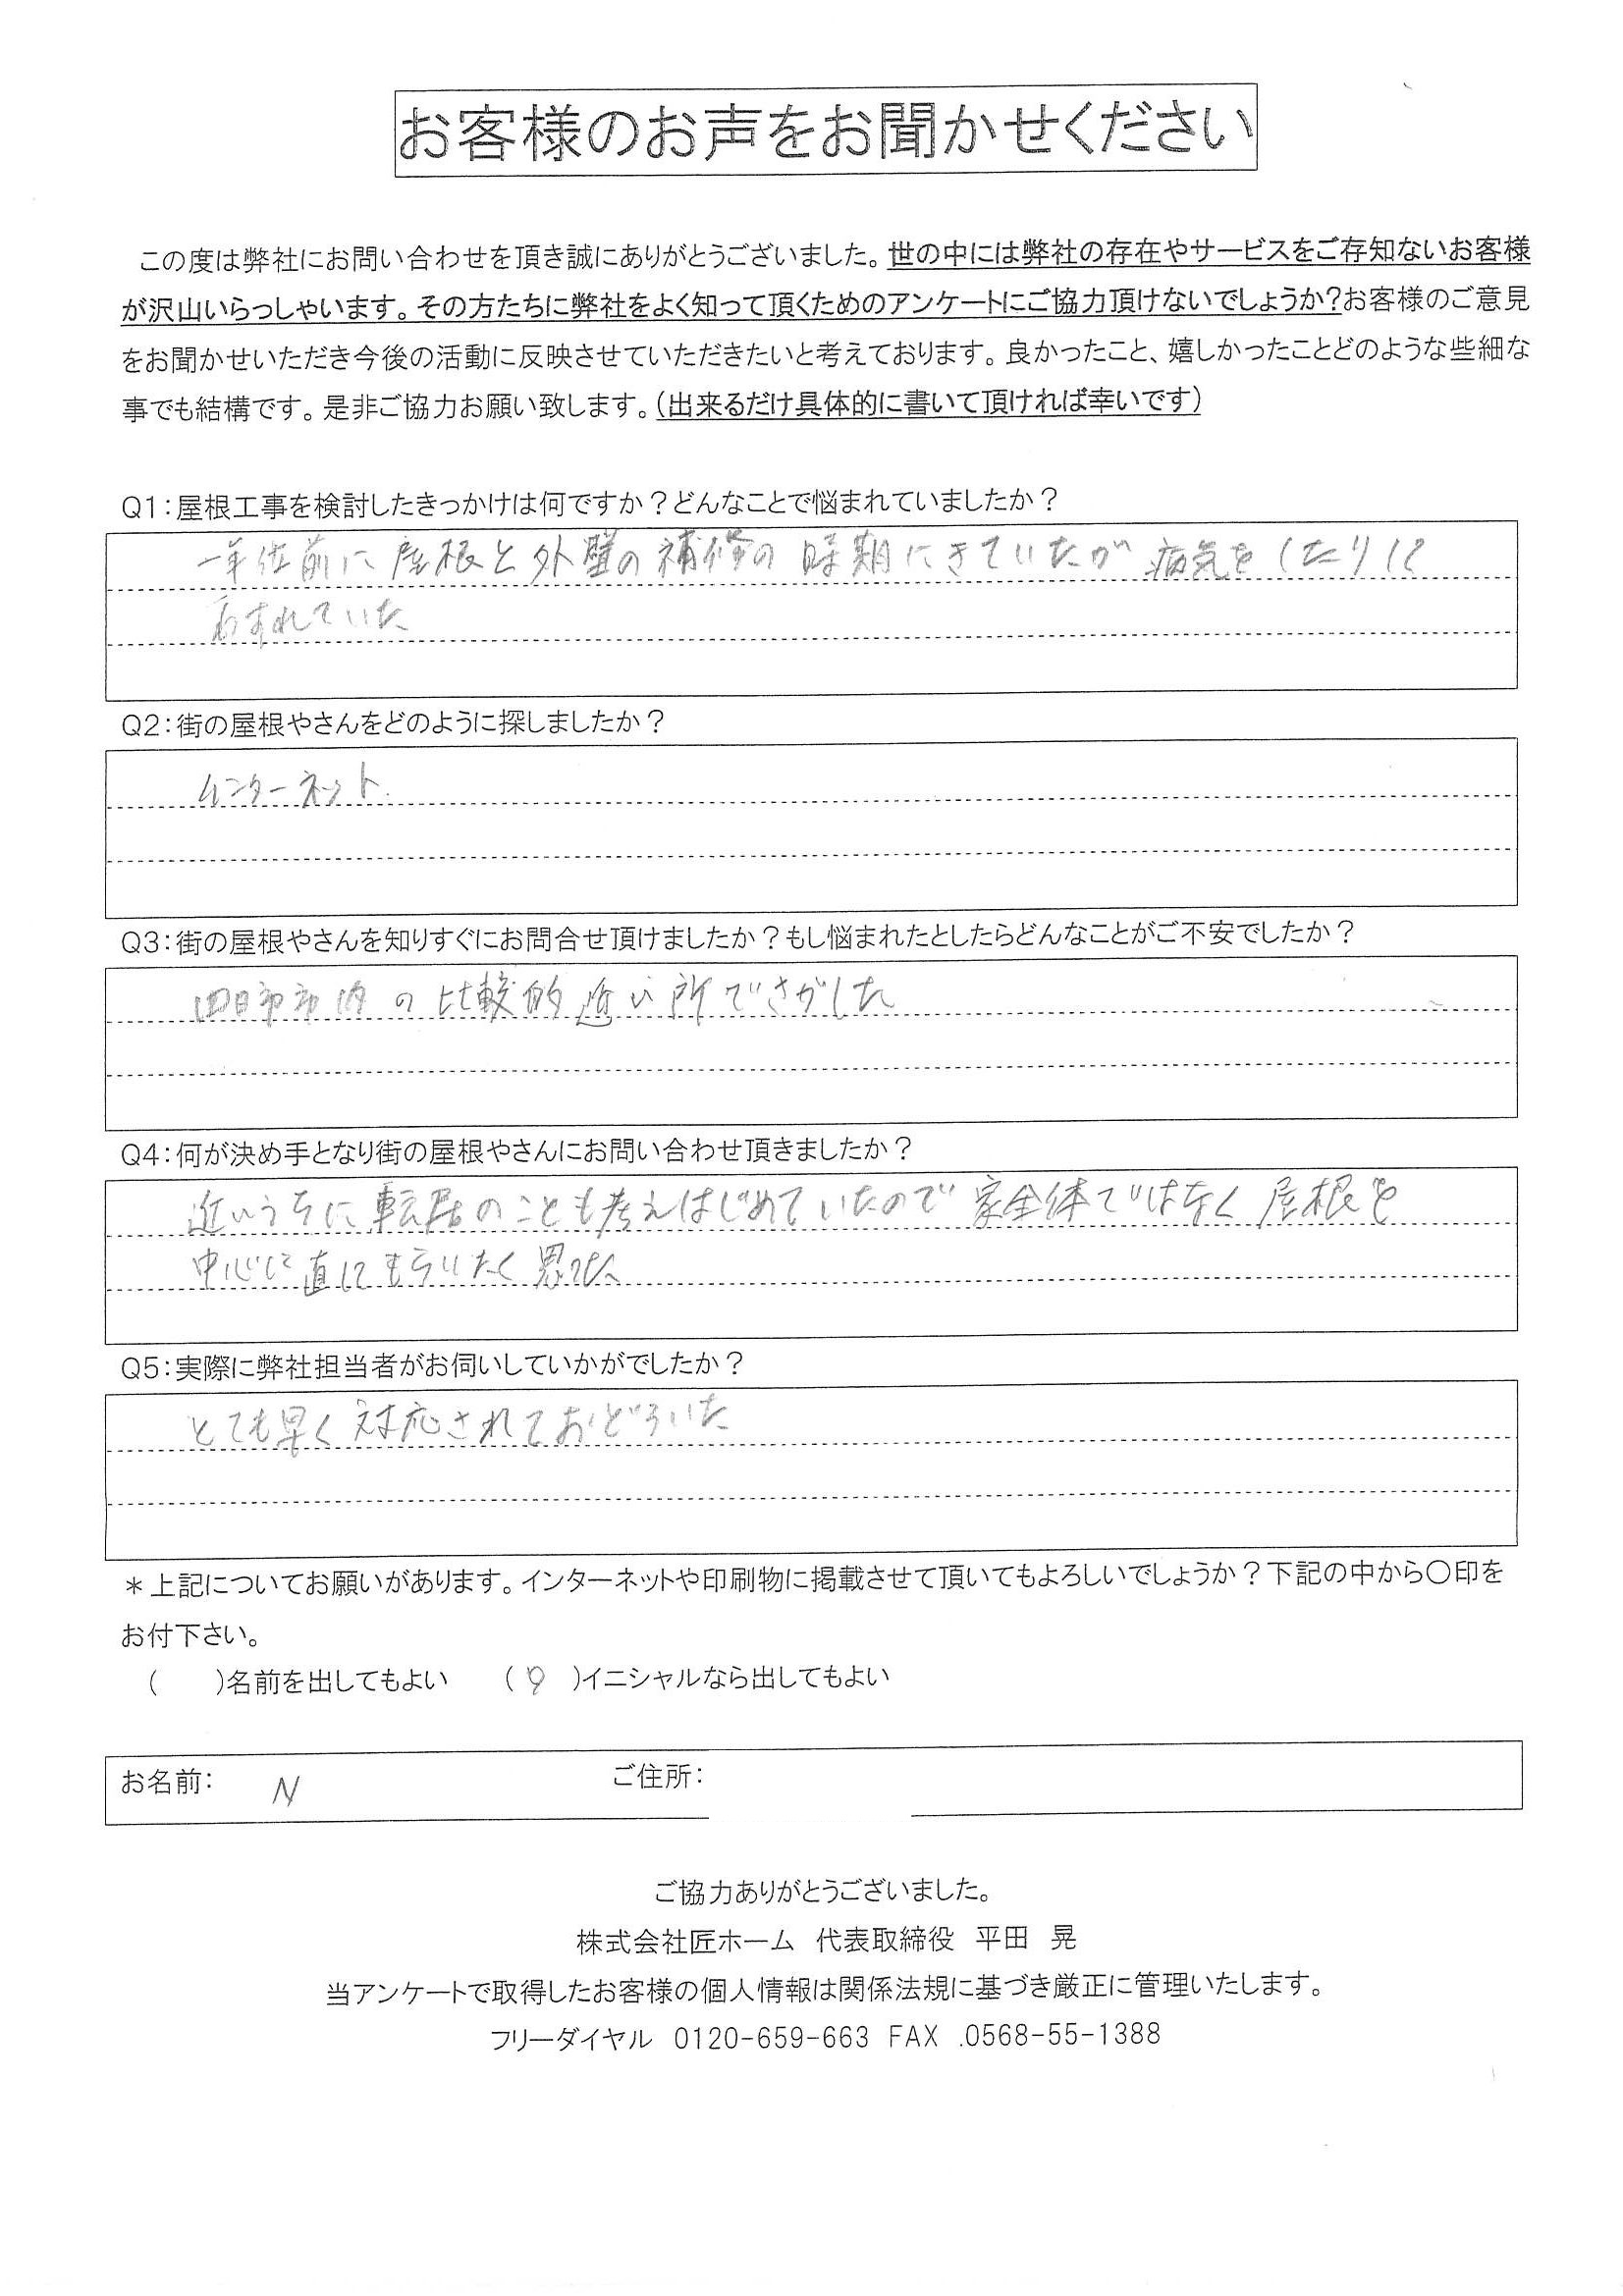 お客様のお声をお聞かせください
この度は弊社にお問い合わせを頂き誠にありがとうございました。世の中には弊社の存在やサービスをご存知ないお客様
が沢山いらっしゃいます。その方たちに弊社をよく知って頂くためのアンケートにご協力頂けないでしょうか?お客様のご意見
をお聞かせいただき今後の活動に反映させていただきたいと考えております。良かったこと、嬉しかったことどのような些細な
事でも結構です。是非ご協力お願い致します。(出来るだけ具体的に書いて頂ければ幸いです)
Q1:屋根工事を検討したきっかけは何ですか?どんなことで悩まれていましたか?
一年位前に屋根と外壁の補修の時期にきていたが病気をしたりして
わすれていた
Q2:街の屋根やさんをどのように探しましたか?
インターネット.
Q3:街の屋根やさんを知りすぐにお問合せ頂けましたか?もし悩まれたとしたらどんなことがご不安でしたか?
四日市市内の比較的近い所でさがした
Q4:何が決め手となり街の屋根やさんにお問い合わせ頂きましたか?
近いうちに転居のことも考えはじめていたので家全体ではなく屋根を
中心に直してもらいたく思った
Q5:実際に弊社担当者がお伺いしていかがでしたか?
とても早く対応されておどろいた
*上記についてお願いがあります。インターネットや印刷物に掲載させて頂いてもよろしいでしょうか?下記の中から〇印を
お付下さい。
( )名前を出してもよい (○)イニシャルなら出してもよい
お名前: N ご住所:
ご協力ありがとうございました。
株式会社匠ホーム 代表取締役 平田 晃
当アンケートで取得したお客様の個人情報は関係法規に基づき厳正に管理いたします。
フリーダイヤル 0120-659-663 FAX .0568-55-1388